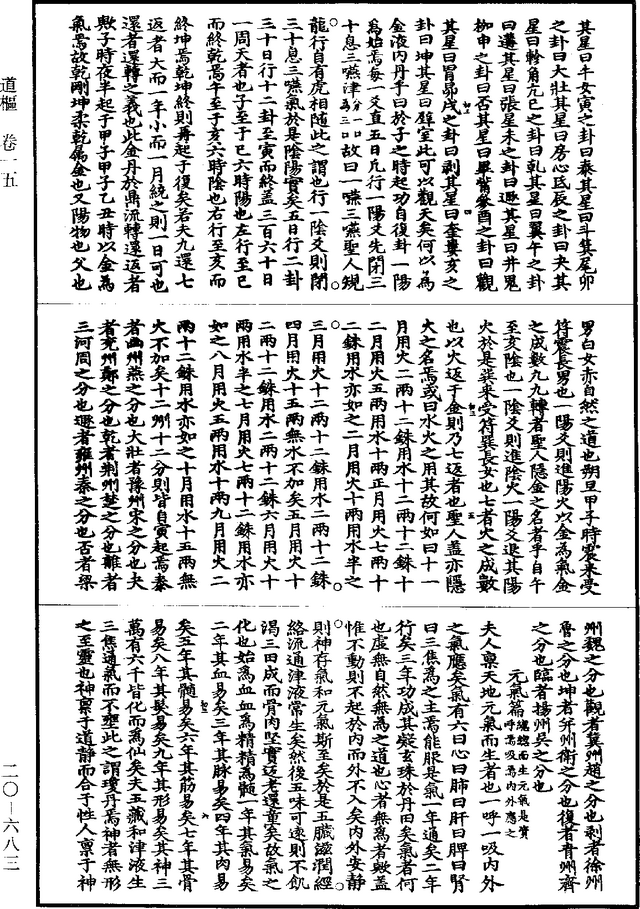 道樞 卷一五
二〇—六八三
其星曰牛女寅之卦曰泰其星曰斗箕尾卯
之卦曰大壯其星曰房心氐辰之卦曰夬其
星曰軫角亢巳之卦曰乾其星曰翼午之卦
曰遘其星曰張星未之卦曰遯其星曰井鬼
柳申之卦曰否其星曰畢觜參酉之卦曰觀
其星曰胃昴戌之卦曰剥其星曰奎婁亥之
卦曰坤其星曰壁室此可以觀天矣何以為
金液內丹乎曰於子之時起功自復卦一陽
爲始焉每一爻直五日凡行一陽爻先閉三
十息三嚥津故曰一嚥三嚥聖人親
龍行自有虎相隨此之謂也行一陰爻則閉
三十息三嚥氣於是陰陽實矣五日行二卦
三十日行十二卦至寅而終蓋三百六十日
一周天者也子至于巳六時陽也左行至巳
而終乾焉午至于亥六時陰也右行至亥而
終坤焉乾坤終則再起于復矣若夫九還七
返者大而一年小而一月統之則一日可也
還者還轉之義也此金丹於鼎流轉還返者
歟子時夜半起于甲子甲子乙丑時以金爲
氣焉故乾剛坤柔乾屬金也又陽物也父也
男白女赤自然之道也朔旦甲子時震來受
符震長男也一陽爻則進陽火以金爲氣金
之成數九九轉者聖人隱金之名者乎自午
至亥陰也一陰爻則進陰火一陽爻退其陽
火於是巽來受符巽長女也七者火之成數
也以火返于金則乃七返者也聖人蓋亦隱
火之名焉或曰水火之用其故何如曰十一
月用火二兩十二銖用水十二兩十二銖十
二月用火五兩用水十兩正月用火七兩十
二銖用水亦如之二月用火十兩用水半之
三月用火十二兩十二銖用水二兩十二銖
四月用火十五兩無水不加矣五月用火十
二兩十二銖用水二兩十二銖六月用火十
兩用水半之七月用火七兩十二銖用水亦
如之八月用火五兩用水十兩九月用火二
兩十二銖用水亦如之十月用水十五兩無
火不加矣十二州十二分則皆自寅起焉泰
者幽州燕之分也大壯者豫州宋之分也夬
者兖州鄭之分也乾者荆州楚之分也離者
三河周之分也遯者雍州秦之分也否者梁
州魏之分也觀者冀州趙之分也剥者徐州
魯之分也坤者并州衛之分也復者青州齊
之分也臨者揚州吳之分也
元氣篇
夫人禀天地元氣而生者也一呼一吸內外
之氣應矣氣有六曰心曰肺曰肝曰脾曰腎
曰三焦爲之主焉能服是氣一年通矣二年
行矣三年功成其凝玄珠於丹田矣氣者何
也虛無自然無爲之道也心者無爲者歟蓋
惟不動則不起於內而外不入矣內外安静
則神存氣和元氣斯至矣於是五臟滋潤經
絡流通津液常生矣然後五味可遠則不飢
渴三田成而骨肉堅實邁老還童矣故氣之
化也始爲血血爲精精爲髓一年其氣易矣
二年其血易矣三年其脉易矣四年其肉易
矣五年其髓易矣六年其筋易矣七年其骨
易矣八年其髮易矣九年其形易矣其神三
萬有六千皆化而為仙矣夫五藏和津液生
三焦通氣而不壅此之謂瓊丹焉神者無形
之至靈也神禀于道静而合于性人禀于神